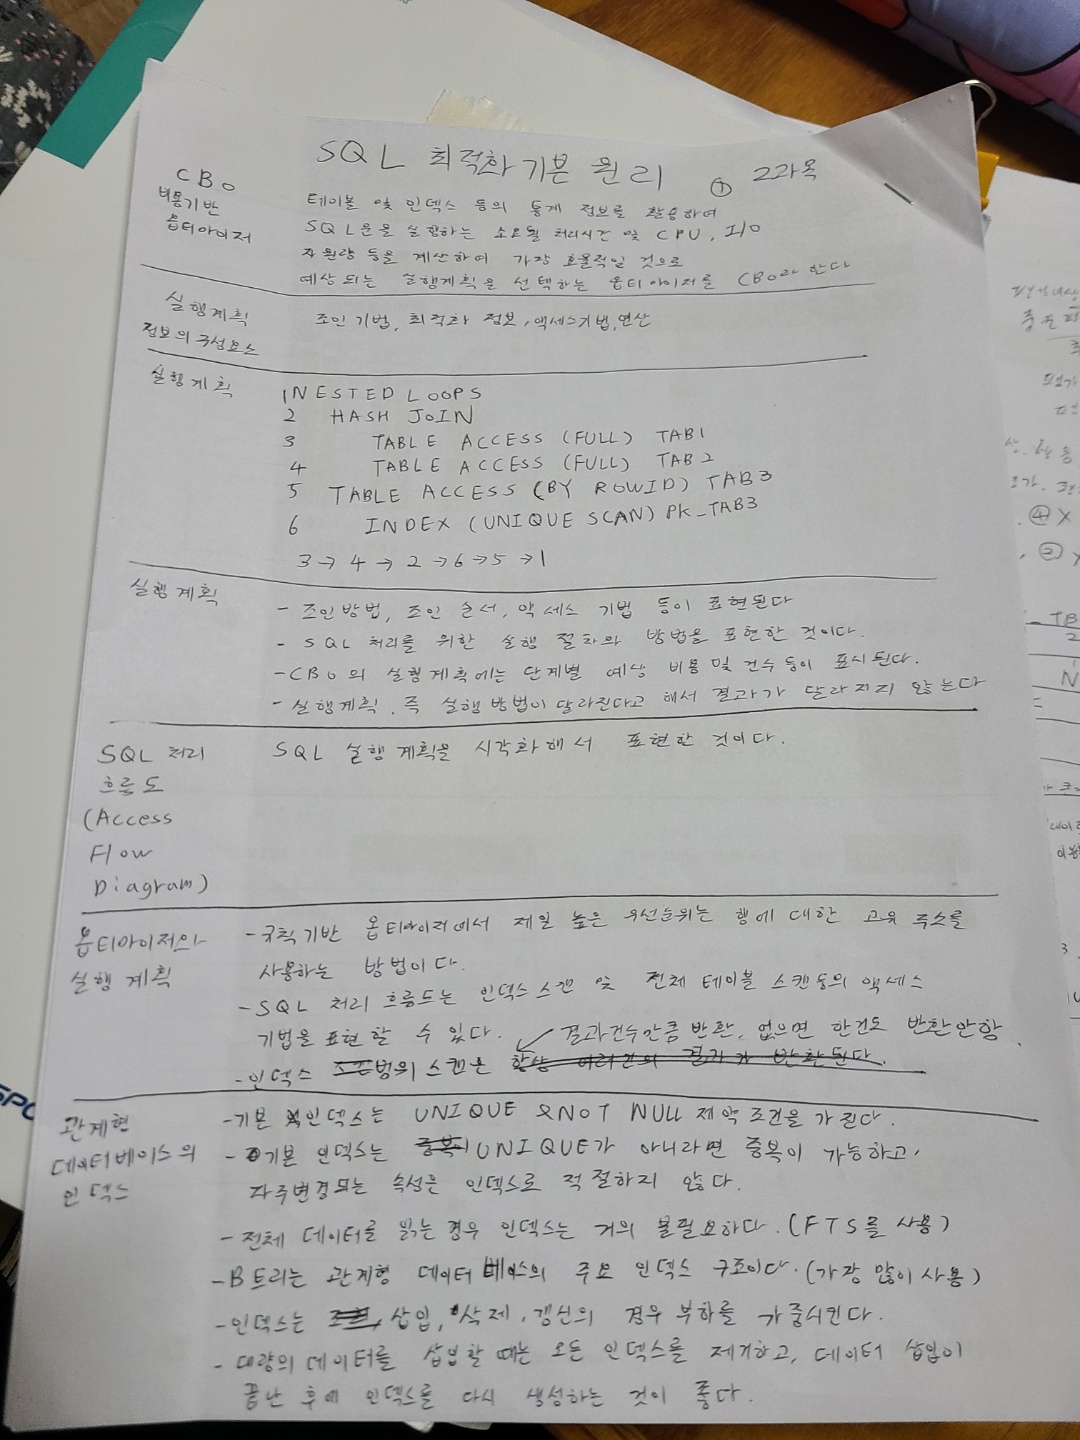 SQL 최적화 기본 원리 ① 2과목
CBO
비용기반
옵티마이저
테이블 및 인덱스 등의 통계 정보를 활용하여
SQL문을 실행하는 소요될 처리시간 및 CPU, I/O
자원량 등을 계산하여 가장 효율적일 것으로
예상되는 실행계획을 선택하는 옵티마이저를 CBO라 한다
실행계획
정보의 구성요소
조인 기법, 최적화 정보, 액세스기법, 연산
실행계획
1 NESTED LOOPS
2 HASH JOIN
3 TABLE ACCESS (FULL) TAB1
4 TABLE ACCESS (FULL) TAB2
5 TABLE ACCESS (BY ROWID) TAB3
6 INDEX (UNIQUE SCAN) PK_TAB3
3 → 4 → 2 → 6 → 5 → 1
실행계획
- 조인방법, 조인 순서, 액세스 기법 등이 표현된다
- SQL 처리를 위한 실행 절차와 방법을 표현한 것이다.
- CBO의 실행계획에는 단계별 예상 비용 및 건수 등이 표시된다.
- 실행계획, 즉 실행방법이 달라진다고 해서 결과가 달라지지 않는다
SQL 처리
흐름도
(Access
Flow
Diagram)
SQL 실행계획을 시각화해서 표현한 것이다.
옵티마이저와
실행 계획
- 규칙기반 옵티마이저에서 제일 높은 우선순위는 행에 대한 고유 주소를
사용하는 방법이다.
- SQL 처리 흐름도는 인덱스 스캔 및 전체 테이블 스캔 등의 액세스
기법을 표현할 수 있다.
결과건수만큼 반환, 없으면 한건도 반환안함.
- 인덱스 범위 스캔은 항상 여러건의 결과가 반환된다.
관계현
데이터베이스의
인덱스
- 기본 인덱스는 UNIQUE & NOT NULL 제약 조건을 가진다.
- 기본 인덱스는 중복이 UNIQUE가 아니라면 중복이 가능하고,
자주변경되는 속성은 인덱스로 적절하지 않다.
- 전체 데이터를 읽는 경우 인덱스는 거의 불필요하다. (FTS를 사용)
- B트리는 관계형 데이터베이스의 주요 인덱스 구조이다. (가장 많이 사용)
- 인덱스는 삽입, 삭제, 갱신의 경우 부하를 가중시킨다.
- 대량의 데이터를 삽입할 때는 모든 인덱스를 제거하고, 데이터 삽입이
끝난 후에 인덱스를 다시 생성하는 것이 좋다.
④ X